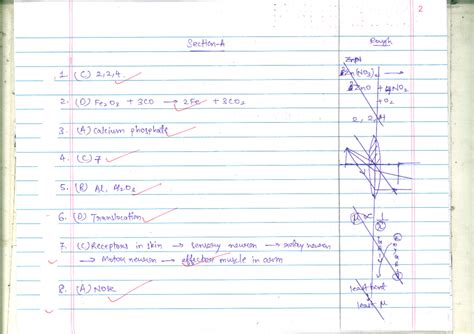 2
Section-A
Rough
1. (C) 2,2,4.
2. (D) Fe2O3 + 3CO → 2Fe + 3CO2
3. (A) Calcium phosphate
4. (C) 7
5. (B) Al, H2O2
6. (D) Translocation
7. (C) Receptors in skin → sensory neuron → relay neuron
→ Motor neuron → effector muscle in arm
8. (A) Nose
Zn(NO3)2 →
2ZnO + 4NO2
+O2
2, 2, 4
μ ∝ 1/λ
least bent
least μ